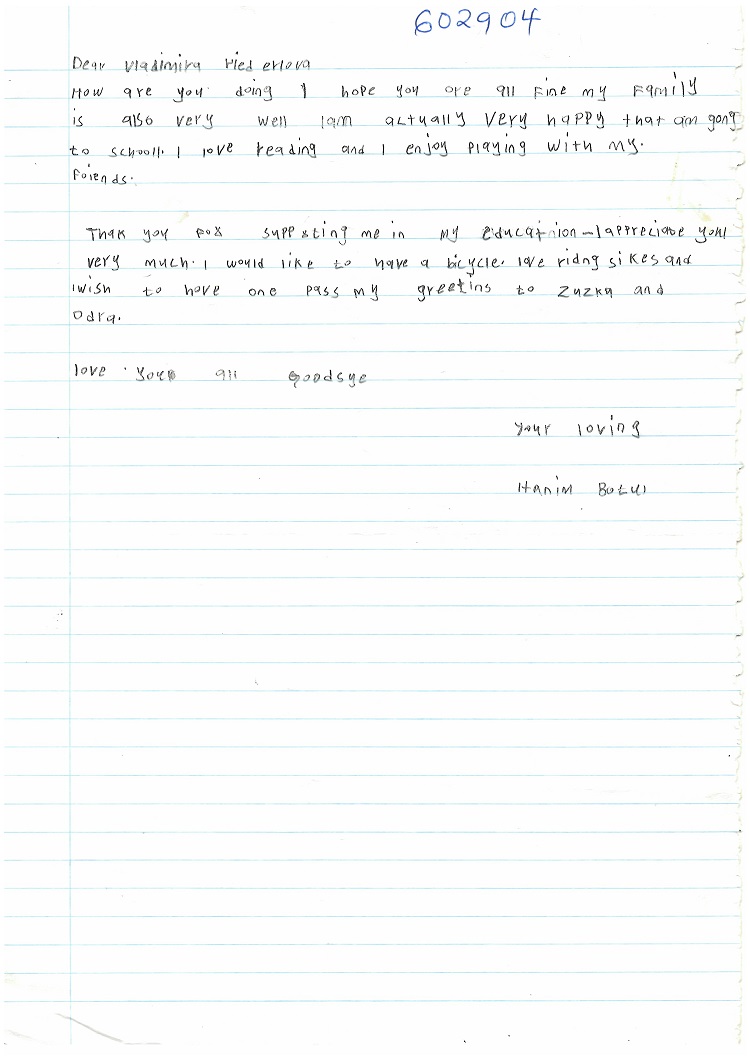 602904
Dear Vladimira Riederlova
How are you doing I hope you are all Fine my Family
is also very well Iam actually Very happy that am gong
to schooll. I love reading and I enjoy Playing with my.
Foiends.
Thak you Fox suppxting me in my Education-Iappreciate your
very much. I would like to have a bicycle. love ridng sikes and
Iwish to have one Pass my greetins to Zuzka and
Odra.
love your all Goodsye
your loving
Hanim Botul